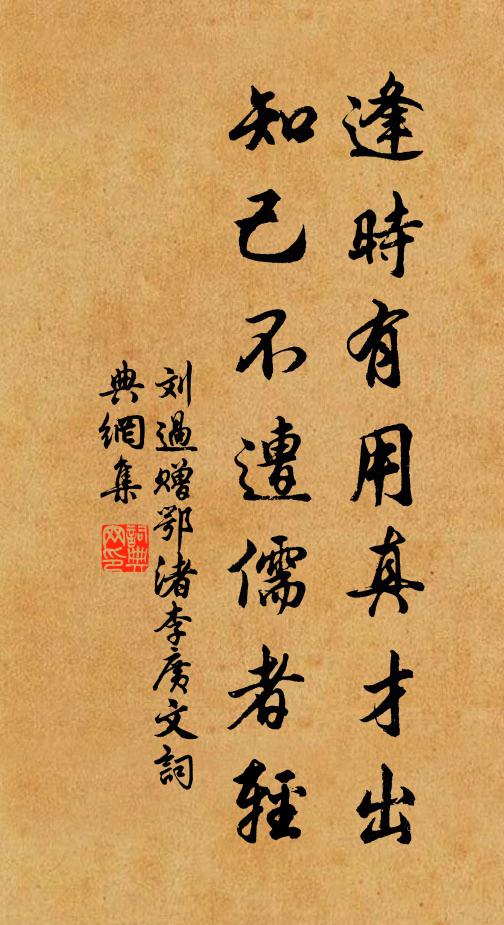 逢時有用真才出
知己不遭儒者輕
刘過贈鄂渚李廣文詞
典網集
詞典
网印